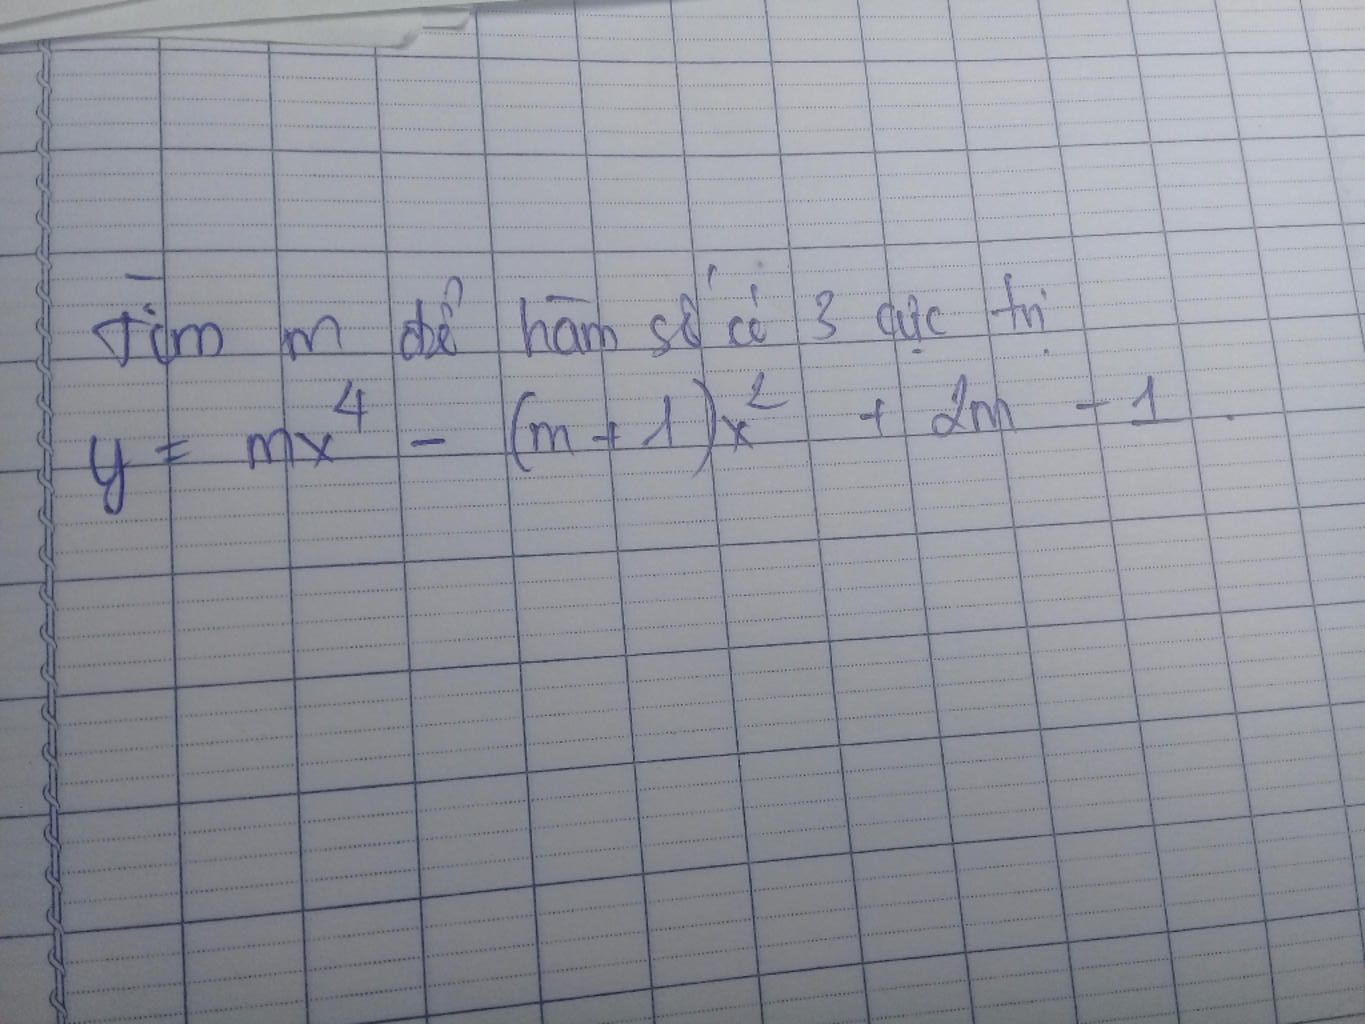 Tìm m để hàm số có 3 cực trị
y = mx⁴ - (m + 1)x² + 2m - 1.